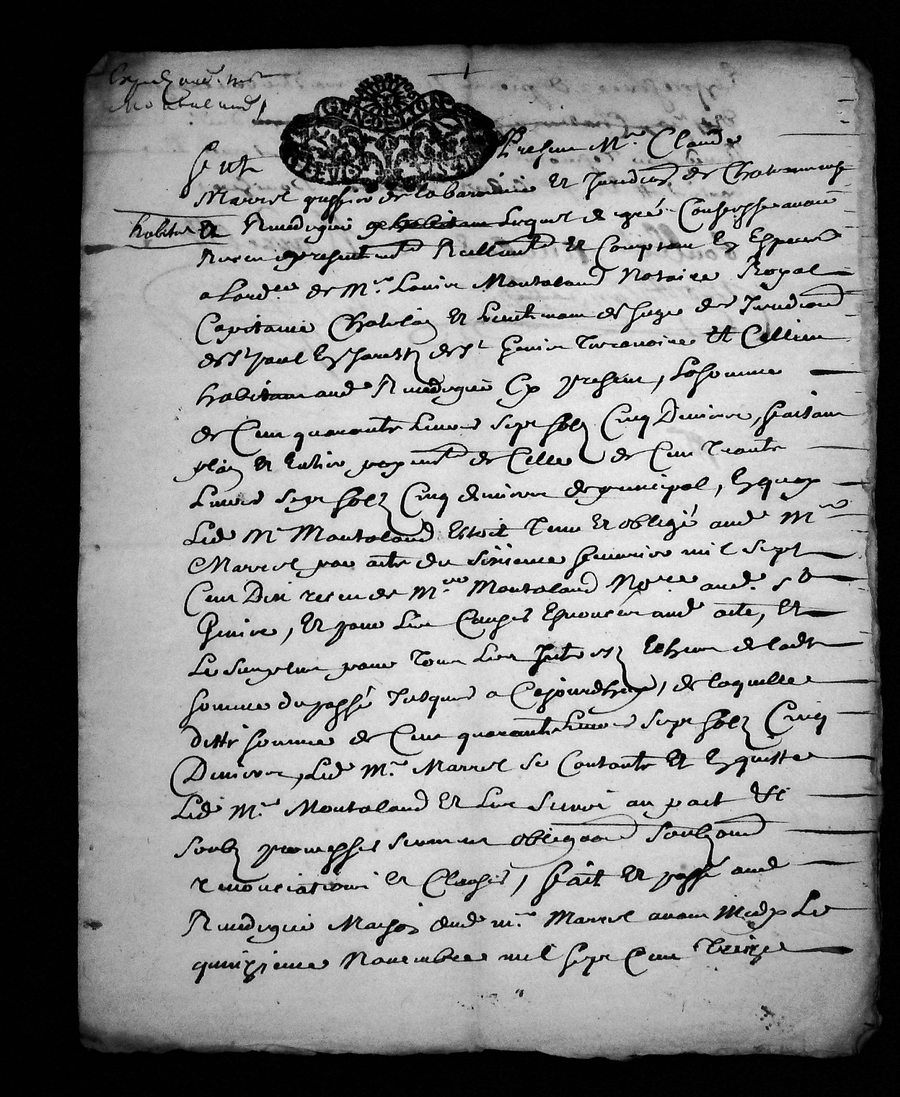 Expedié aud. mr
Montaland
fut Present Mr. Claude
Marrel greffier de la baronnie et Juridion de Chateauneuf
habitant et Rivedegier Lequel de gré Confesse avoir
Receu presentement Reellement et Comptan En Especes
a Lordre de Mr. Louis Montaland Notaire Royal
Capitaine Chatelain et Lieutenant de Juge des Juridions
de St. paul En Jarest, de St. Genis Terrenoire et Cellieu
habitant aud Rivedegier Cy present, La somme
de Cent quarante Livres Sept solz Cinq Deniers, faisant
plein et Entier payement de Celle de Cent Trente
Livres Sept Solz Cinq deniers de principal, En quoy
Led Mr. Montaland Estoit Tenu et obligé aud Mre
Marrel par acte du Sixieme Janvier mil Sept
Cent Dix receu de Mre Montaland Nore aud. St
Genis, et pour Les Causes Enoncées aud acte, et
Le Surplus pour Tous Les Intéréz Echeus de ladte
somme du passé Jusques a Cejourdhuy, de laquelle
ditte somme de Cent quarante Livres Sept Solz Cinq
Deniers, Led Mr. Marrel se Contante et En quitte
Led Mr. Montaland et Les Siens au pact &c
Soubz promesses serment obligaons Soubzmons
renonciations et Clauses, fait et passé aud
Rivedegier Maison dud mr. Marrel avant Midy Le
quinzieme Novembre mil Sept Cent Treize